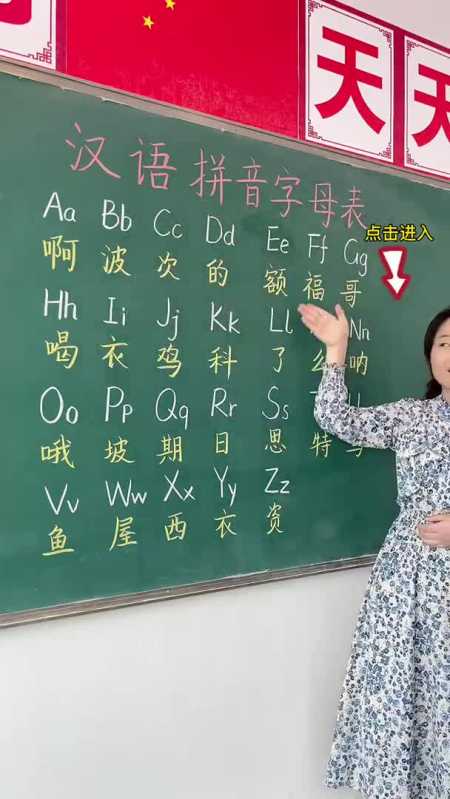 天 天
汉语拼音字母表
点击进入
Aa Bb Cc Dd Ee Ff Gg
啊 波 次 的 额 福 哥
Hh Ii Jj Kk Ll Nn
喝 衣 鸡 科 了 么 呐
Oo Pp Qq Rr Ss
哦 坡 期 日 思 特
Vv Ww Xx Yy Zz
鱼 屋 西 衣 资